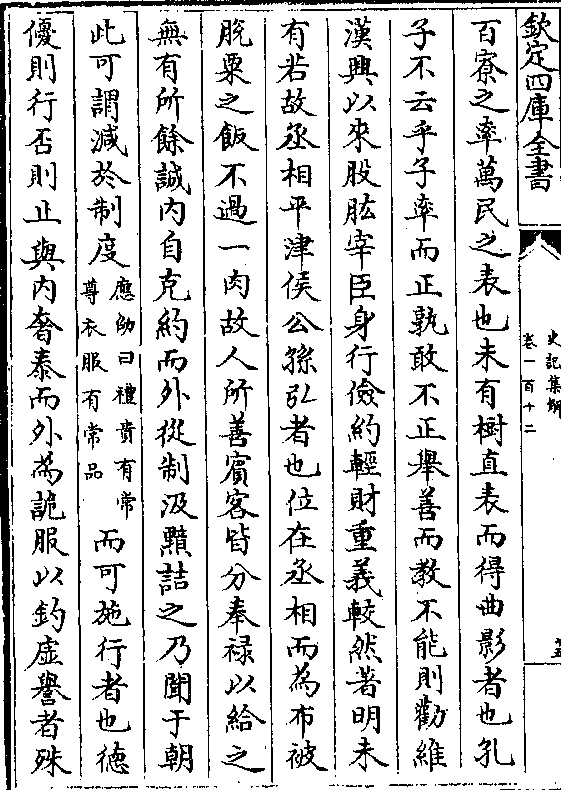 欽定四庫全書
史記集解
卷一百十二
百寮之率萬民之表也未有樹直表而得曲影者也孔
子不云乎子率而正孰敢不正舉善而教不能則勸維
漢興以來股肱宰臣身行儉約輕財重義較然著明未
有若故丞相平津侯公孫弘者也位在丞相而為布被
脫粟之飯不過一肉故人所善賓客皆分奉祿以給之
無有所餘誠內自克約而外從制汲黯詰之乃聞于朝
此可謂減於制度
應劭曰禮貴有常
尊衣服有常品
而可施行者也德
優則行否則止與內奢泰而外為詭服以釣虛譽者殊